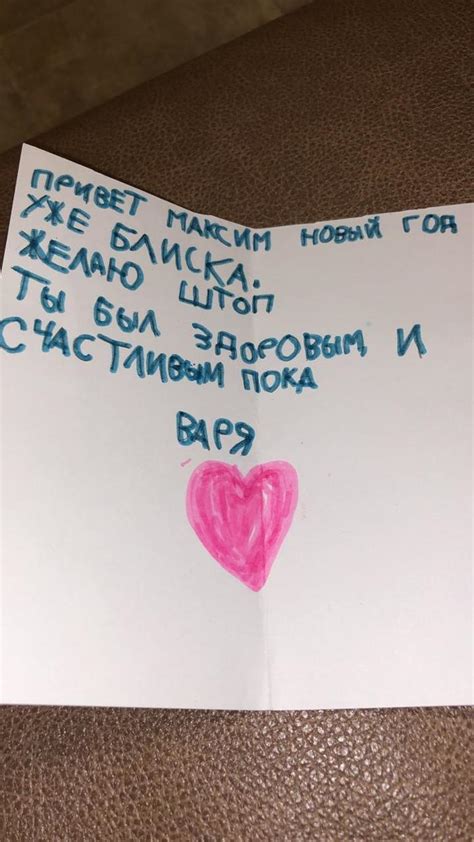 ПРИВЕТ МАКСИМ НОВЫЙ ГОД
УЖЕ БЛИСКА.
ЖЕЛАЮ ШТОП
ТЫ БЫЛ ЗДОРОВЫМ, И
СЧАСТЛИВЫМ ПОКА
ВАРЯ